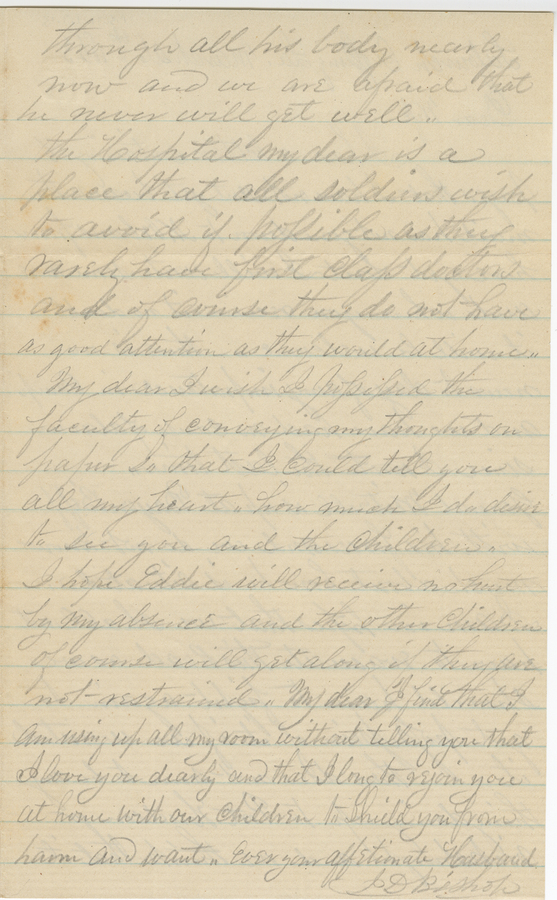 through all his body nearly
now and we are afraid that
he never will get well..
the Hospital my dear is a
place that all soldiers wish
to avoid if possible as they
rarely have first class doctors
and of course they do not have
as good attention as they would at home..
My dear I wish I possissed the
faculty of conveying my thoughts on
paper so that I could tell you
all my heart.. how much I do desire
to see you and the children..
I hope Eddie will receive no hurt
by my absence and the other Children
of course will get along if they are
not restrained.. My dear I find that I
am using up all my room without telling you that
I love you dearly and that I long to rejoin you
at home with our Children to Shield you from
harm and want.. Ever your affetionate Husband
J D Bishop